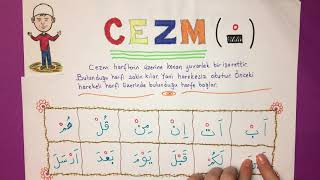 CEZM ( ْ )
Cezm harflerin üzerine konan yuvarlak bir işarettir.
Bulunduğu harfi sakin kılar. Yani harekesiz okutur. Önceki
harekeli harfi üzerinde bulunduğu harfe bağlar.
اَبْ اَتْ اِنْ مِنْ قُلْ هُمْ
لَكُمْ قَبْلَ يَوْمَ بَعْدَ اَرْسَلَ